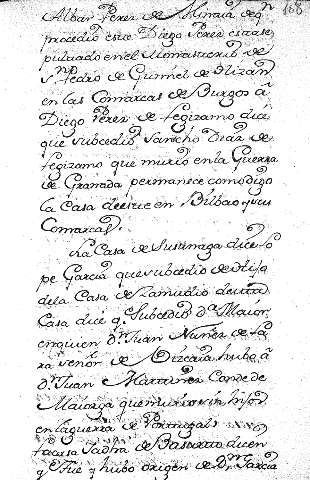 168
Albar Perez de Minaia de qn
procedio este Diego Perez esta se
pultado en el Monasterio de
Sn Pedro de Gumiel de Hizan
en las Comarcas de Burgos â
Diego Perez de Legizamo dice
que subcedio Sancho Diaz de
Legizamo que murio en la Guerra
de Granada permanece como digo
la Casa de este en Bilbao y sus
Comarcas.
La Casa de Susunaga dice Lo
pe Garcia que subcedio de Hijo
de la Casa de Zamudio de esta
Casa dice q. Subcedio Da Maior
en quien Dn Juan Nuñez de La
ra señor de Vizcaia hubo â
Dn Juan Martinez Conde de
Maiorga que murio sin hijos
en la guerra de Portugal,
la casa de Basurto dicen
q. Fue y hubo origen de Dn Garcia